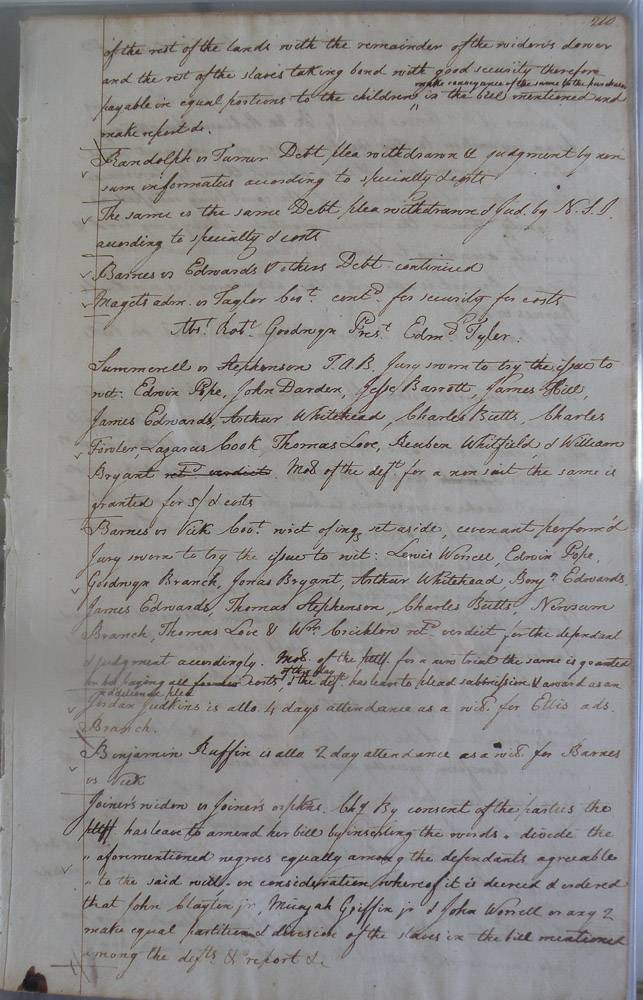 210
of the rest of the lands with the remainder of the widow's dower
and the rest of the slaves taking bond with good security therefore
make conveyance of the same to the purchasers
payable in equal portions to the children in the bill mentioned and
make report &c.
Randolph vs Turner Debt plea withdrawn & judgment by non
sum informatus according to specialty & costs
The same vs the same Debt plea withdrawn & Jud. by N.S.I.
according to specialty & costs
Barnes vs Edwards & others Debt continued
Magets adm. vs Taylor Cov.t cont.d for security for costs
Abs.t Rob.t Goodwyn Pres.t Edm.d Tyler.
Summerell vs Stephenson T.A.B. Jury sworn to try the issue to
wit: Edwin Pope, John Darden, Jesse Barrott, James Hill,
James Edwards, Arthur Whitehead, Charles Butts, Charles
Fowler, Lazarus Cook, Thomas Love, Reuben Whitfield, & William
Bryant ret.d verdict. Mo: of the def.t for a non suit the same is
granted for 5/ & costs
Barnes vs Vick Cov.t writ of inq set aside, covenant perform'd
Jury sworn to try the issue to wit: Lewis Worrell, Edwin Pope,
Goodwyn Branch, Jonas Bryant, Arthur Whitehead Benj.n Edwards,
James Edwards, Thomas Stephenson, Charles Butts, Newsum
Branch, Thomas Love & Wm. Crichlow ret.d verdict for the defendant
& judgment accordingly. Mo: of the pltff. for a new trial the same is granted
on his paying all former costs of this day & the def.t has leave to plead submission & award as an
additional plea
Jordan Judkins is allo. 4 days attendance as a wit: for Ellis ads.
Branch.
Benjamin Ruffin is allo 2 day attendance as a wit: for Barnes
vs Vick
Joiner's widow vs Joiner's orphns. Chy By consent of the parties the
pltff has leave to amend her bill by inserting the words "divide the
"aforementioned negroes equally among the defendants agreeable
"to the said will" on consideration whereof it is decreed & ordered
that John Clayton jr, Micajah Griffin jr & John Worrell or any 2
make equal partition & division of the slaves in the bill mentioned
among the def.ts & report &c